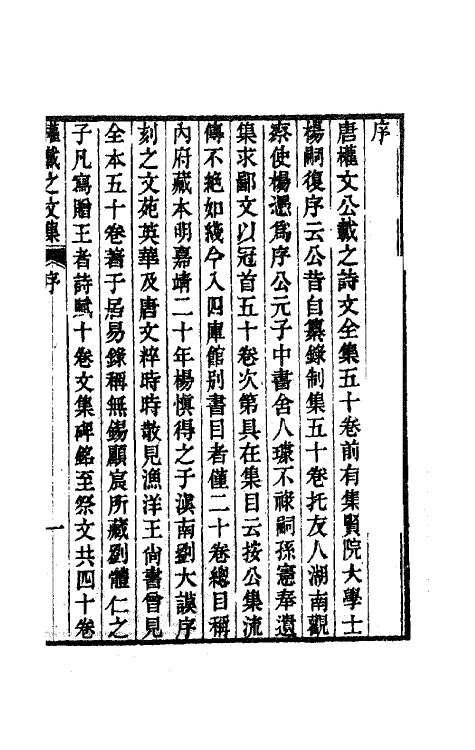 序
唐權文公載之詩文全集五十卷前有集賢院大學士
楊嗣復序云公昔自纂錄制集五十卷托友人湖南觀
察使楊憑爲序公元子中書舍人璩不祿嗣孫憲奉遺
集求鄙文以冠首五十卷次第具在集目云按公集流
傳不絕如綫今入四庫館別書目者僅二十卷總目稱
內府藏本明嘉靖二十年楊愼得之于滇南劉大謨序
刻之文苑英華及唐文粹時時散見漁洋王尚書曾見
全本五十卷著于居易錄稱無錫顧宸所藏劉體仁之
子凡寫贈王者詩賦十卷文集碑銘至祭文共四十卷
權載之文集 序 一